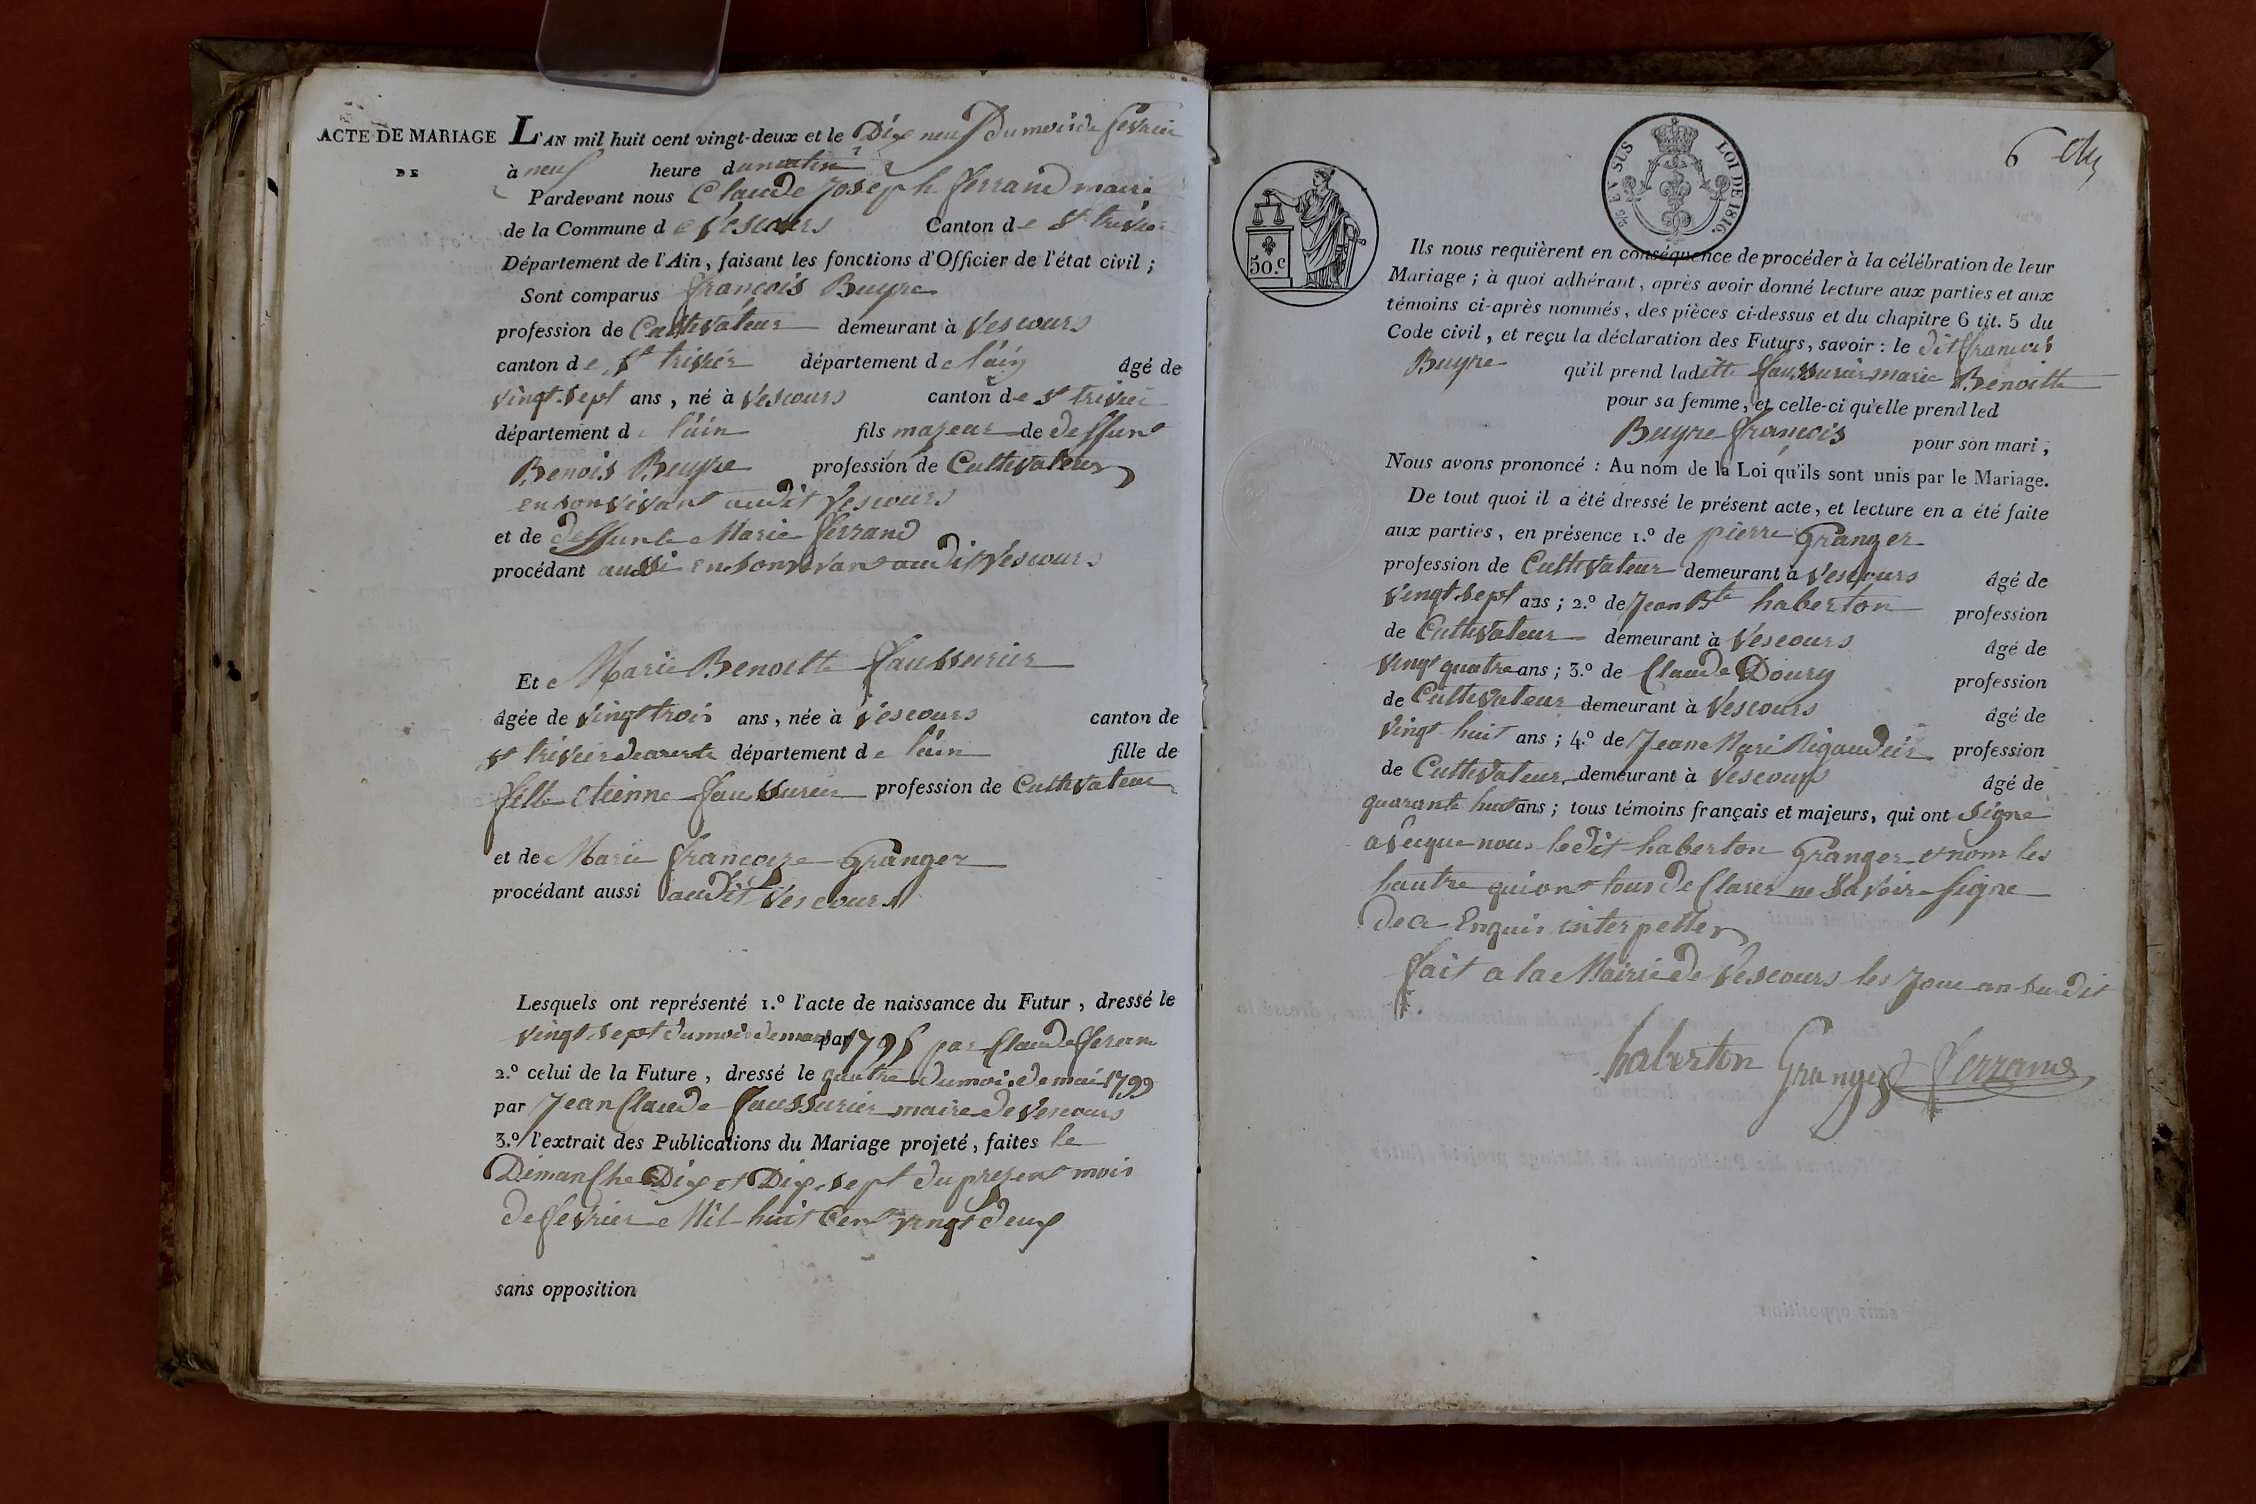 ACTE DE MARIAGE
DE
L'AN mil huit cent vingt-deux et le Dix neuf du mois de fevrier
à neuf heure du matin
Pardevant nous Claude Joseph ferrand maire
de la Commune de Vescours Canton de St trivier
Département de l'Ain, faisant les fonctions d'Officier de l'état civil ;
Sont comparus françois Buyre
profession de Cultivateur demeurant à Vescours
canton de St trivier département de l'ain âgé de
vingt-sept ans, né à Vescours canton de St trivier
département de l'ain fils majeur de deffunt
Benois Buyre profession de Cultivateur
en son vivant audit Vescours
et de deffunte Marie ferrand
procédant aussi en son vivant audit Vescours
Et Marie Benoitte faussurier
âgée de vingt trois ans, née à Vescours canton de
St trivier de courtes département de l'ain fille de
fille etienne faussurier profession de Cultivateur
et de Marie françoise Granger
procédant aussi audit Vescours
Lesquels ont représenté 1.º l'acte de naissance du Futur, dressé le
vingt-sept du mois de mars par 1795 par Claude ferran
2.º celui de la Future, dressé le quatre du mois de mai 1799
par Jean Claude faussurier maire de Vescours
3.º l'extrait des Publications du Mariage projeté, faites le
Dimanche Dix et Dix-sept du present mois
de fevrier Mil huit Cent vingt deux
sans opposition
50.C
EN SUS
LOI DE 1816.
6
Ils nous requièrent en conséquence de procéder à la célébration de leur
Mariage ; à quoi adhérant, après avoir donné lecture aux parties et aux
témoins ci-après nommés, des pièces ci-dessus et du chapitre 6 tit. 5 du
Code civil, et reçu la déclaration des Futurs, savoir : le dit françois
Buyre qu'il prend laditte faussurier marie Benoitte
pour sa femme, et celle-ci qu'elle prend led
Buyre françois pour son mari ;
Nous avons prononcé : Au nom de la Loi qu'ils sont unis par le Mariage.
De tout quoi il a été dressé le présent acte, et lecture en a été faite
aux parties, en présence 1.º de pierre Granger
profession de Cultivateur demeurant à Vescours âgé de
vingt-sept ans ; 2.º de Jean Bte haberton profession
de Cultivateur demeurant à Vescours âgé de
vingt quatre ans ; 3.º de Claude Doury profession
de Cultivateur demeurant à Vescours âgé de
vingt huit ans ; 4.º de Jean Mari Rigaudier profession
de Cultivateur demeurant à Vescours âgé de
quarante huit ans ; tous témoins français et majeurs, qui ont signe
avecque nous ledit haberton Granger et nom les
hautre qui ont tous de Clarer ne Savoir Signe
de ce Enquis interpeller
fait a la Mairie de Vescours les Jour an Sudit
haberton Granger ferrand